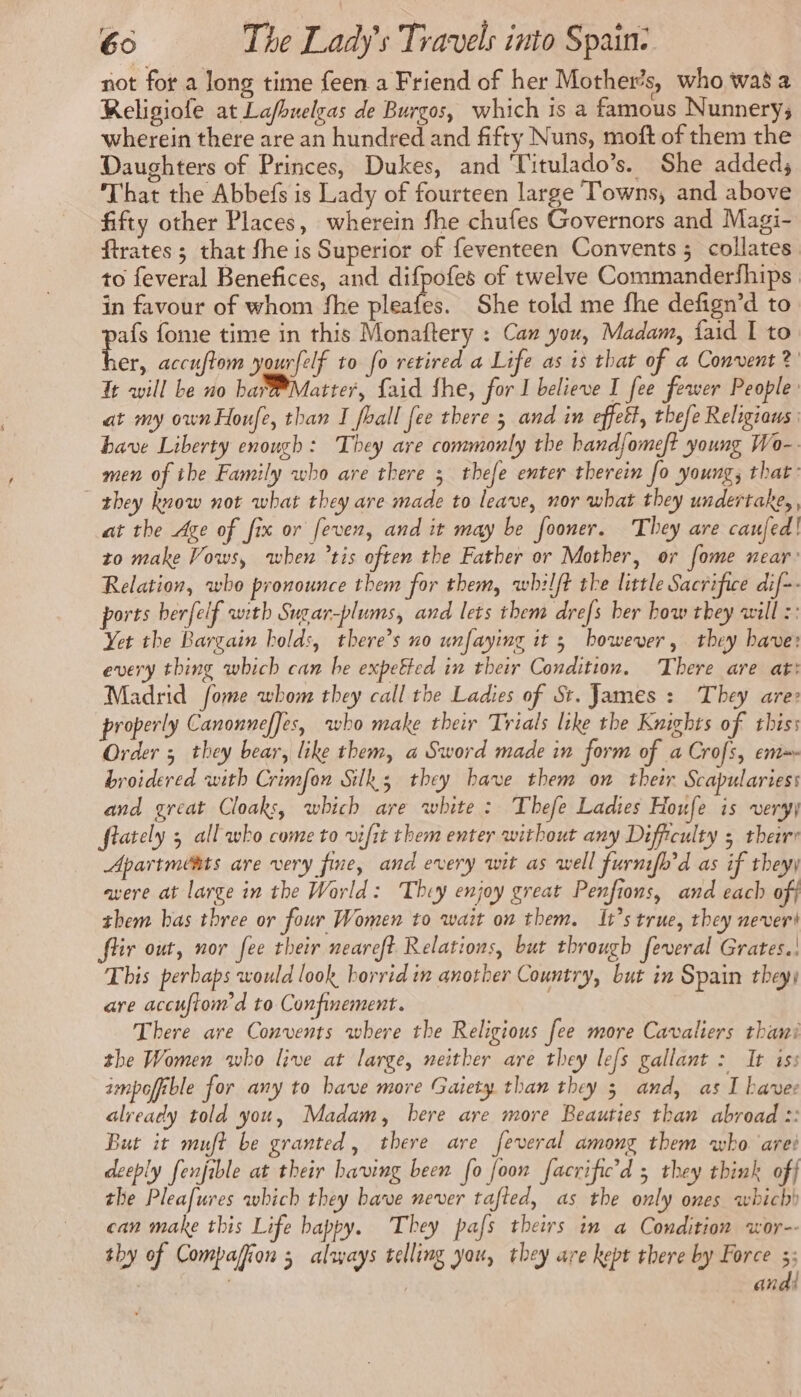 60 The Lady's Travels into Spain.
not for a long time ſeen a Friend of her Mother's, who was a
Religioſe at Laſhuelgas de Burgos, which is a famous Nunnery,
wherein there are an hundred and fifty Nuns, moſt of them the
Daughters of Princes, Dukes, and Titulado's. She added,
That the Abbeſs is Lady of fourteen large Towns, and above
fifty other Places, wherein ſhe chuſes Governors and Magi-
ſtrates; that ſhe is Superior of ſeventeen Convents; collates
to ſeveral Benefices, and diſpoſes of twelve Commanderſhips
in favour of whom ſhe pleaſes. She told me ſhe deſign'd to
paſs ſome time in this Monaſtery: Can you, Madam, ſaid I to
her, accuſtom yourſelf to ſo retired a Life as is that of a Convent?
It will be no hard Matter, ſaid ſhe, for I believe I ſee fewer People
at my own Houſe, than I ſhall ſee there; and in effect, theſe Religious
have Liberty enough: They are commonly the handſomeſt young Wo-
men of the Family who are there; theſe enter therein ſo young, that
they know not what they are made to leave, nor what they undertake,
at the Age of ſix or ſeven, and it may be ſooner. They are cauſed
to make Vows, when 'tis often the Father or Mother, or ſome near
Relation, who pronounce them for them, whilſt the little Sacrifice diſ-
ports herſelf with Sugar-plums, and lets them dreſs her how they will:
Yet the Bargain holds, there's no unſaying it; however, they have
every thing which can be expected in their Condition. There are at
Madrid ſome whom they call the Ladies of St. James: They are
properly Canonneſſes, who make their Trials like the Knights of this
Order; they bear, like them, a Sword made in form of a Croſs, em-
broidered with Crimſon Silk; they have them on their Scapularies
and great Cloaks, which are white: Theſe Ladies Houſe is very
ſtately; all who come to viſit them enter without any Difficulty; their
Apartments are very fine, and every wit as well furniſh'd as if they
were at large in the World: They enjoy great Penſions, and each of
them has three or four Women to wait on them. It's true, they never
ſtir out, nor ſee their neareſt Relations, but through ſeveral Grates.
This perhaps would look horrid in another Country, but in Spain they
are accuſtom'd to Confinement.
There are Convents where the Religious ſee more Cavaliers than
the Women who live at large, neither are they leſs gallant: It is
impoſſible for any to have more Gaiety than they; and, as I have
already told you, Madam, here are more Beauties than abroad:
But it muſt be granted, there are ſeveral among them who are
deeply ſenſible at their having been ſo ſoon ſacrific'd; they think of
the Pleaſures which they have never taſted, as the only ones which
can make this Life happy. They paſs theirs in a Condition wor-
thy of Compaſſion; always telling you, they are kept there by Force;
and